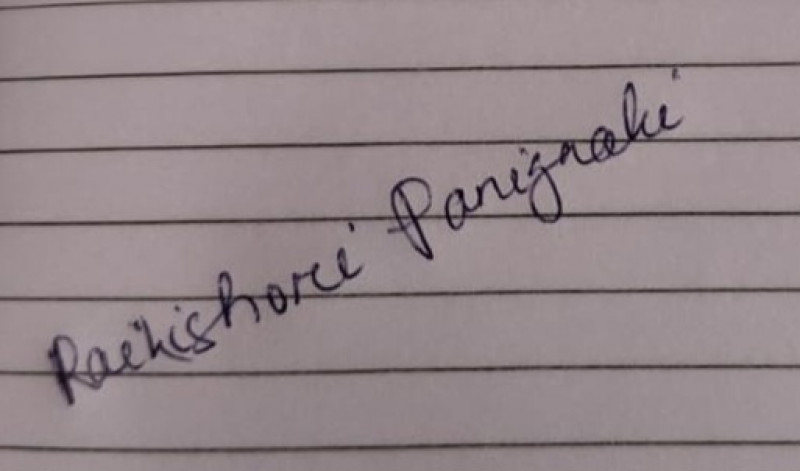 Raikishori Panigrahi